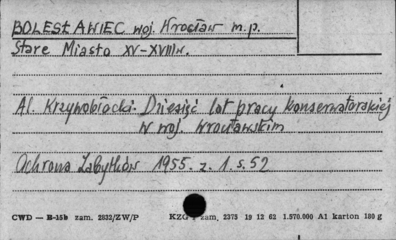 BOLESŁAWIEC woj. Wrocław m.p.
Stare Miasto XV-XVIIIw.
Al. Krzywobłocki. Dziesięć lat pracy konserwatorskiej
w woj. wrocławskim
Ochrona Zabytków 1955. z. 1. s. 52
CWD — B-15b zam. 2832/ZW/P KZG zam. 2375 19 12 62 1.570.000 A1 karton 180 g